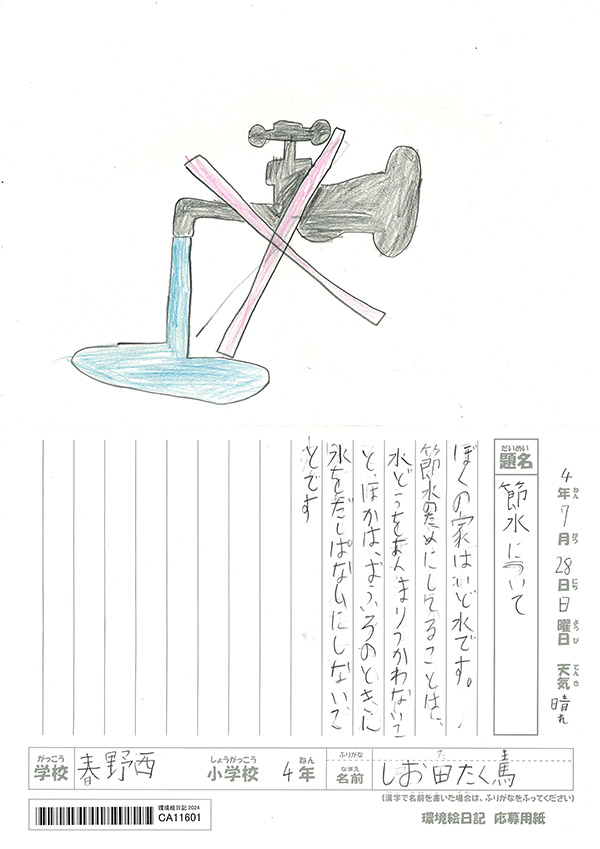 4年7月28日日曜日 天気 晴れ
題名 節水について
ぼくの家はいど水です。
節水のためにしてることは、
水どうをあんまりつかわないこ
と、ほかは、おふろのときに
水をだしぱなしにしないこ
とです
がっこう 学校 春野西 しょうがっこう 小学校 4年 ふりがな なまえ 名前 しお田たく馬
(漢字で名前を書いた場合は、ふりがなをふってください)
環境絵日記2024
CA11601
環境絵日記 応募用紙